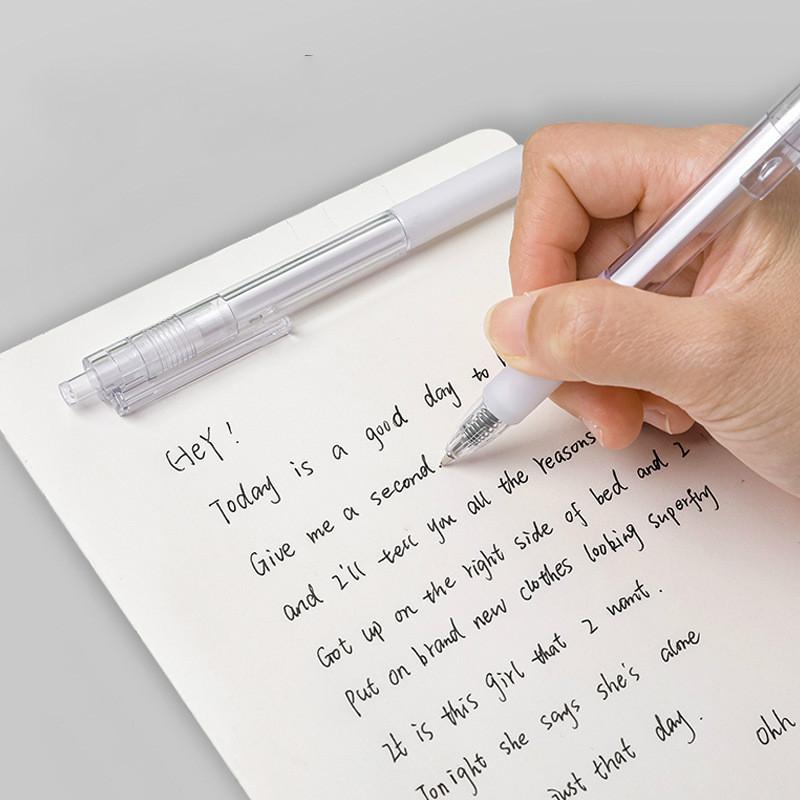 HeY!
Today is a good day to
Give me a second
and I'll tell you all the reasons
Got up on the right side of bed and I
put on brand new clothes looking superfly
It is this girl that I want.
Tonight she says she's alone
just that day. ohh